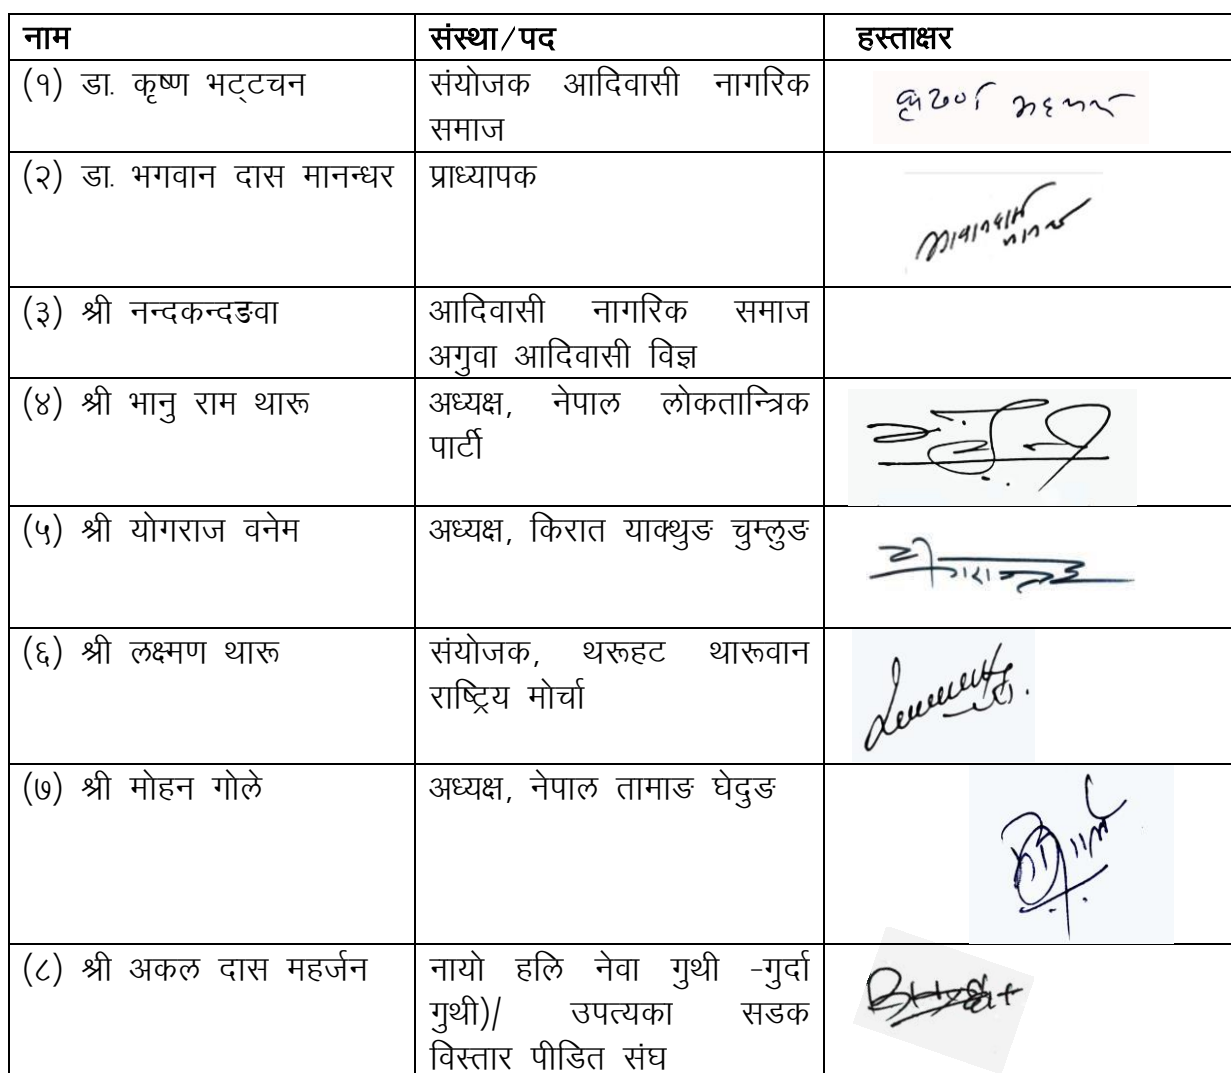 नाम संस्था/पद हस्ताक्षर
(१) डा. कृष्ण भट्टचन संयोजक आदिवासी नागरिक
समाज
(२) डा. भगवान दास मानन्धर प्राध्यापक
(३) श्री नन्दकन्दङवा आदिवासी नागरिक समाज
अगुवा आदिवासी विज्ञ
(४) श्री भानु राम थारू अध्यक्ष, नेपाल लोकतान्त्रिक
पार्टी
(५) श्री योगराज वनेम अध्यक्ष, किरात याक्थुङ चुम्लुङ
(६) श्री लक्ष्मण थारू संयोजक, थरूहट थारूवान
राष्ट्रिय मोर्चा
(७) श्री मोहन गोले अध्यक्ष, नेपाल तामाङ घेदुङ
(८) श्री अकल दास महर्जन नायो हलि नेवा गुथी -गुर्दा
गुथी)/ उपत्यका सडक
विस्तार पीडित संघ